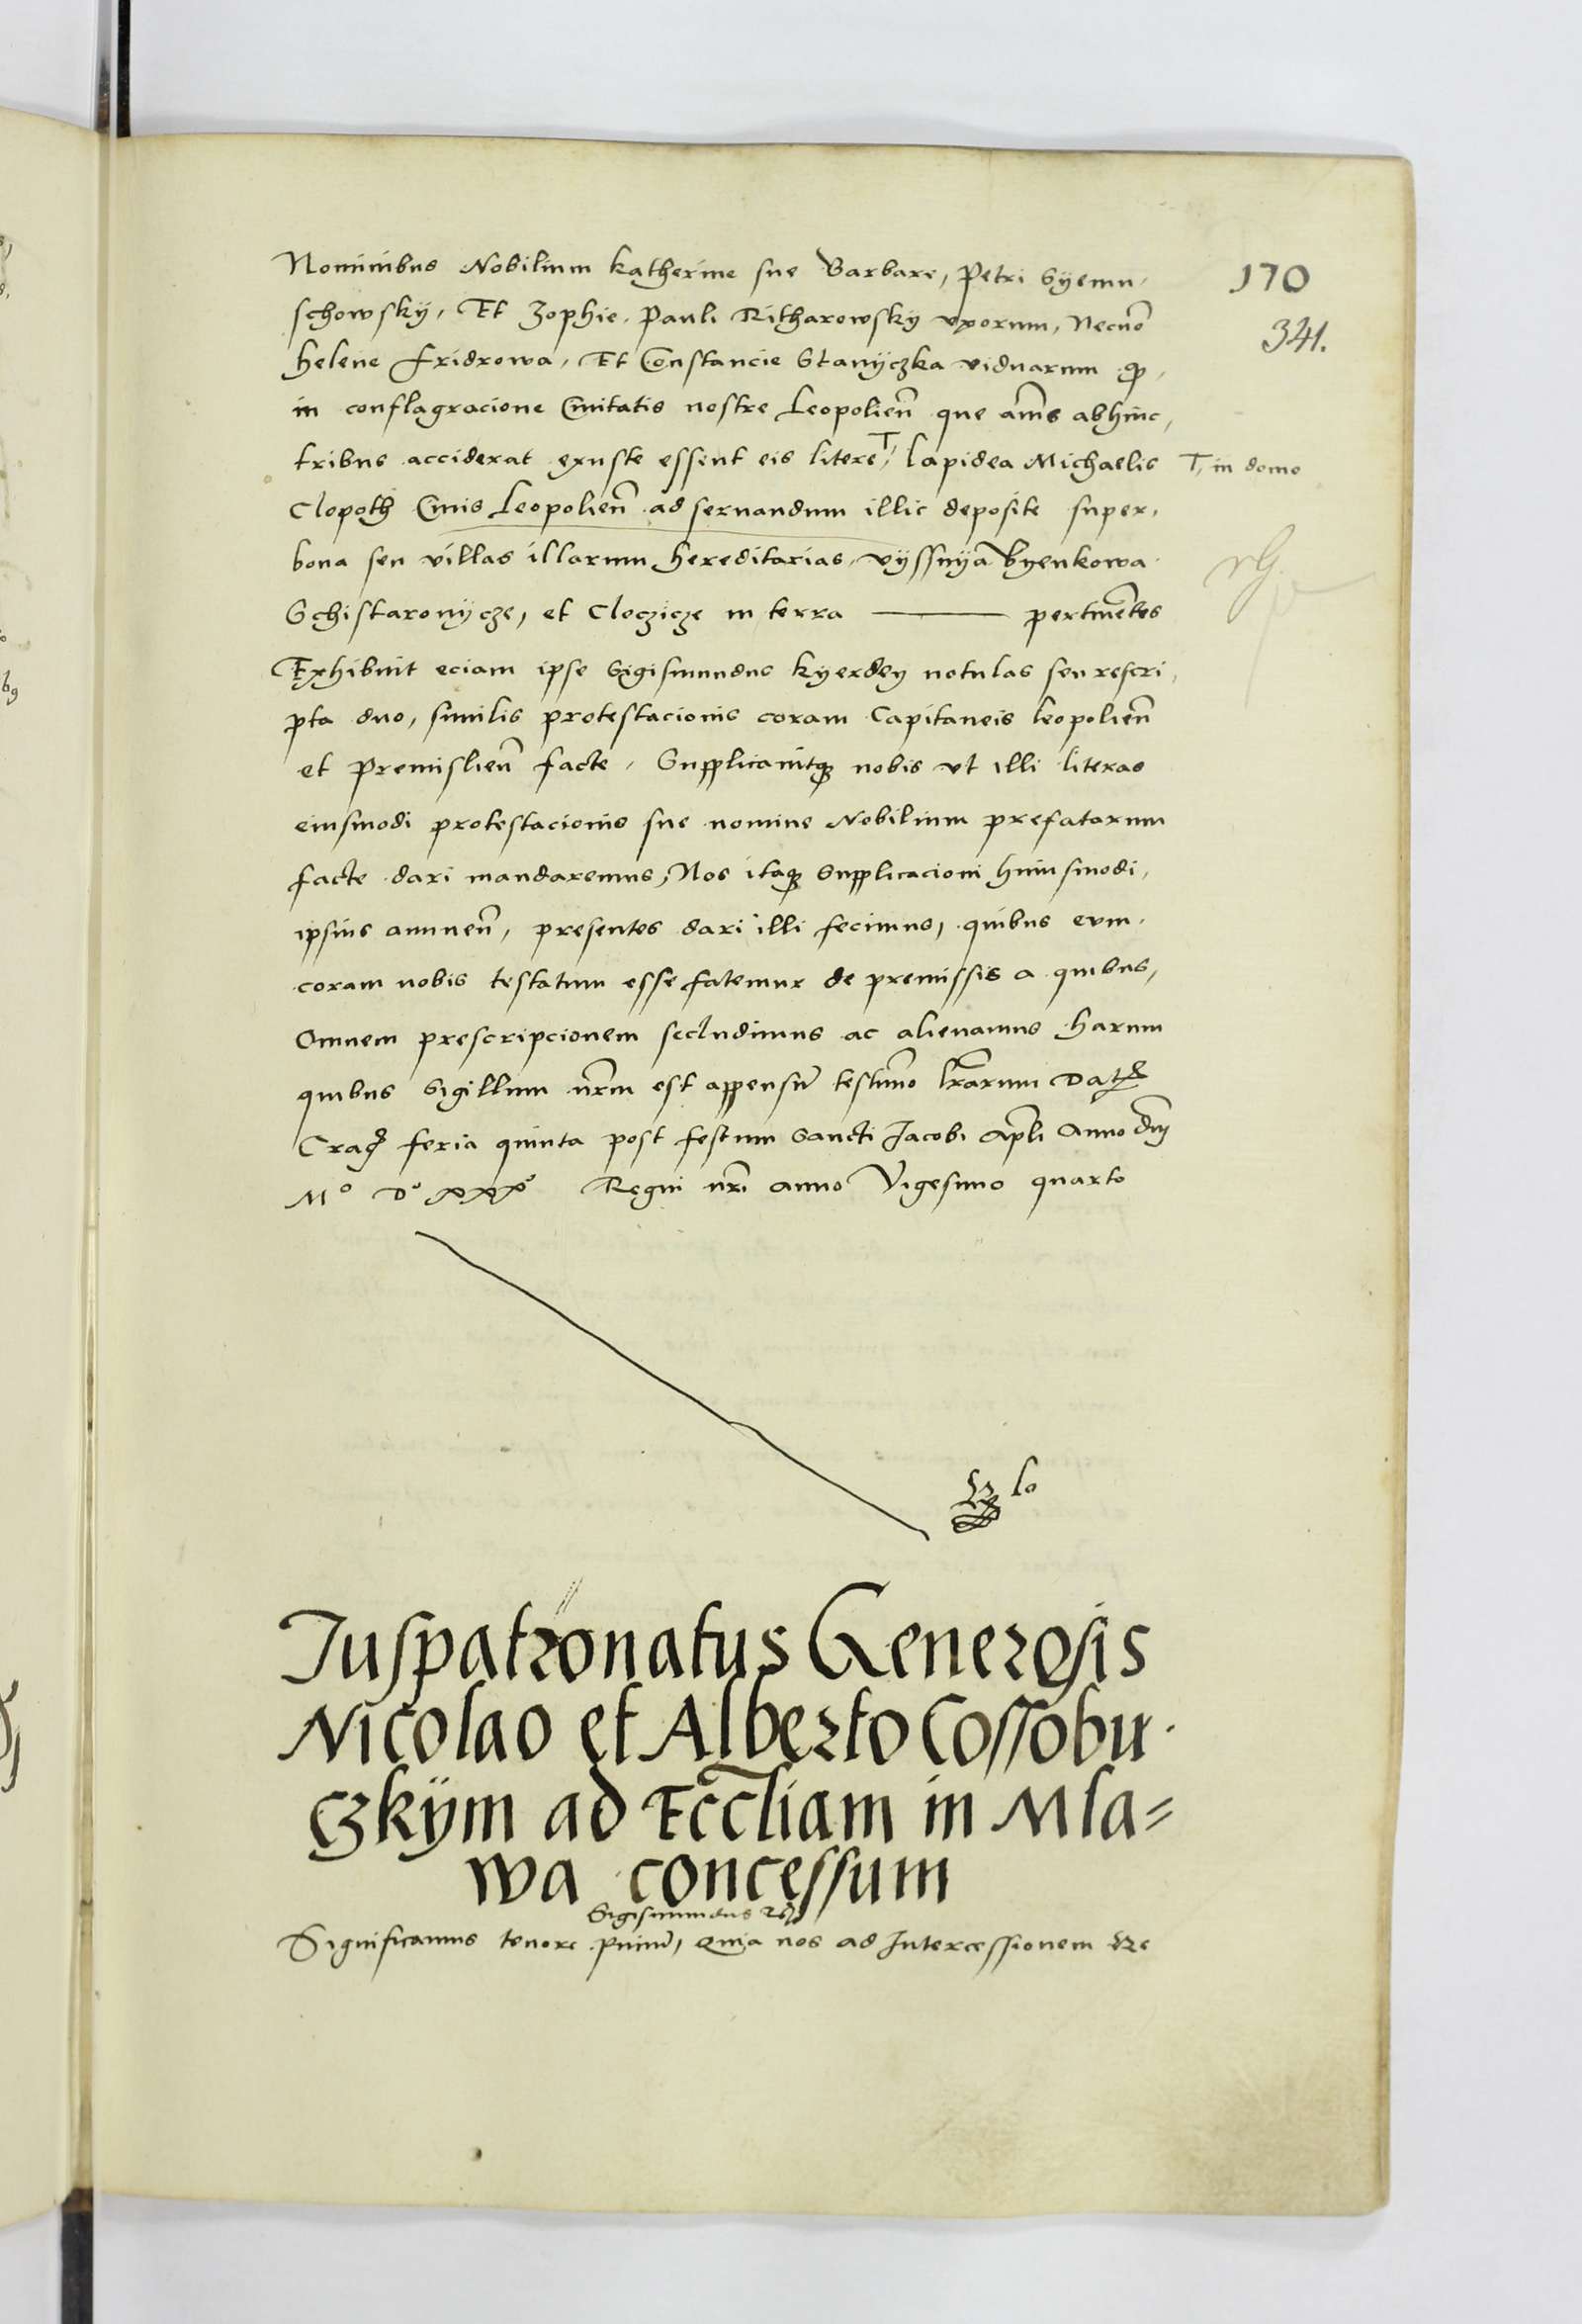 170
341.
Nominibus Nobilium Katherine sue Barbare, Petri Syemu,
schowskÿ, Et Zophie, Pauli Ritharowsky vxorum, Necno͞
helene fridrowa, Et Constancie Stanÿczka viduarum
in conflagracione Ciuitatis nostre Leopolien̄ que annis abhinc,
tribus acciderat exuste essent eis litere, lapidea Michaelis
T, in domo
Clopoth Ciuis Leopolien̄ ad seruandum illic deposite super,
bona seu villas illarum hereditarias, vÿssnÿa Byenkowa
Schistaronÿcze, et Cloczicze in terra ——— pertinētes
Exhibuit eciam ipse Sigismundus Kyerdey notulas seu rescri,
pta duo, similis protestacionis coram Capitaneis leopolien̄
et Premislien̄ facte, Supplicauitqꝫ nobis vt illi literas
eiusmodi protestacionis sue nomine Nobilium prefatarum
facte dari mandaremus, Nos itaqꝫ Supplicacioni huiusmodi,
ipsius annuen̄, presentes dari illi fecimus, quibus eum
coram nobis testatum esse fatemur de premissis a quibus,
Omnem prescripcionem secludimus ac alienamus harum
quibus Sigillum nr̄m est appensū testimo͞ lr̄arum Dat
Crac feria quinta post festum Sancti Jacobi Apl̄i Anno dn̄j
M° D° xxx° Regni nr̄i anno Vigesimo quarto
Juspatronatus Generosis
Nicolao et Alberto Cossobu
czkÿm ad Eccl̄iam in Mla=
wa concessum
Sigismundus Rex
Significamus tenore pn̄ciū, Quia nos ad Intercessionem Re